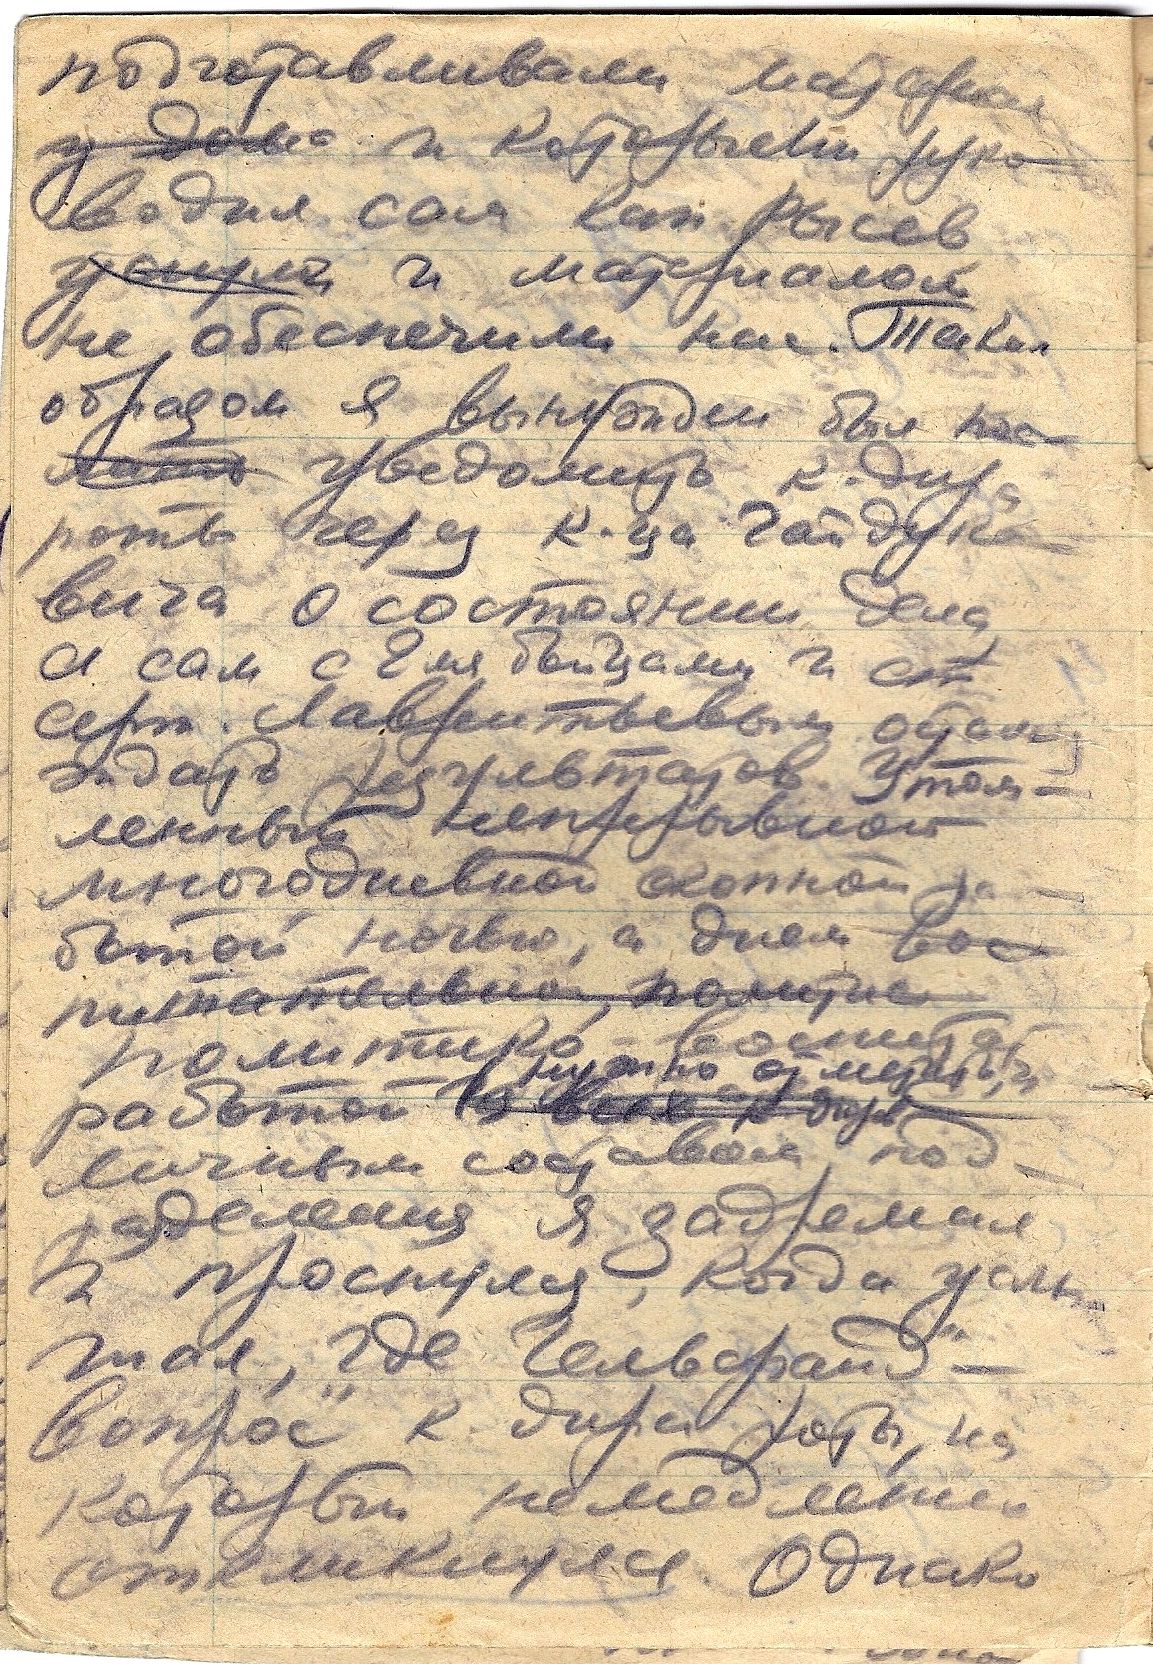 подготавливали материал
и которыми руко
водил сам кап. Рысев
уснули и материалом
не обеспечили нас. Таким
образом я вынужден был пос
лать уведомить к-дира
роты через к-ца Гайдука
вича о состоянии дела,
а сам с 2мя бойцами и ст
серж. Лаврентьевым остался
ждать результатов. Утом-
ленный непрерывной
многодневной окопной ра-
ботой ночью, а днем вос
питательной политико
политико-воспитат
нужно отметить,
работой
личным составом под-
разделения я задремал
и проснулся, когда услы
шал, "где Гельфанд" –
вопрос к-дира роты, на
который немедленно
откликнулся. Однако